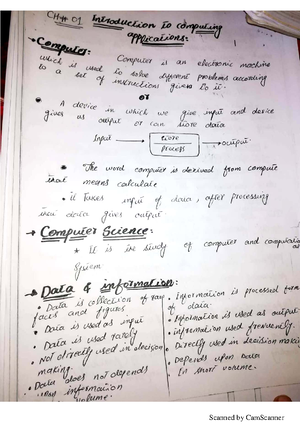 CH# 01 Introduction to computing
applications:
→ Computer:
Computer is an electronic machine
which is used to solve different problems according
to a set of instructions given to it.
or
A device in which we give input and device
gives as output or can store data
Input → store process → output
• The word computer is derived from compute
that means calculate
• it takes input of data, after processing
data gives output.
→ Computer Science:
* It is the study of computer and computation
as
→ Data & information:
• Data is collection of raw
facts and figures.
• Data is used as input
• Data is used rarely
• Not directly used in decision
making.
• Data does not depends
information
volume.
• Information is processed form
of data.
• Information is used as output
• information used frequently.
• Directly used in decision making
• Depends upon data
• In short volume.
Scanned by CamScanner